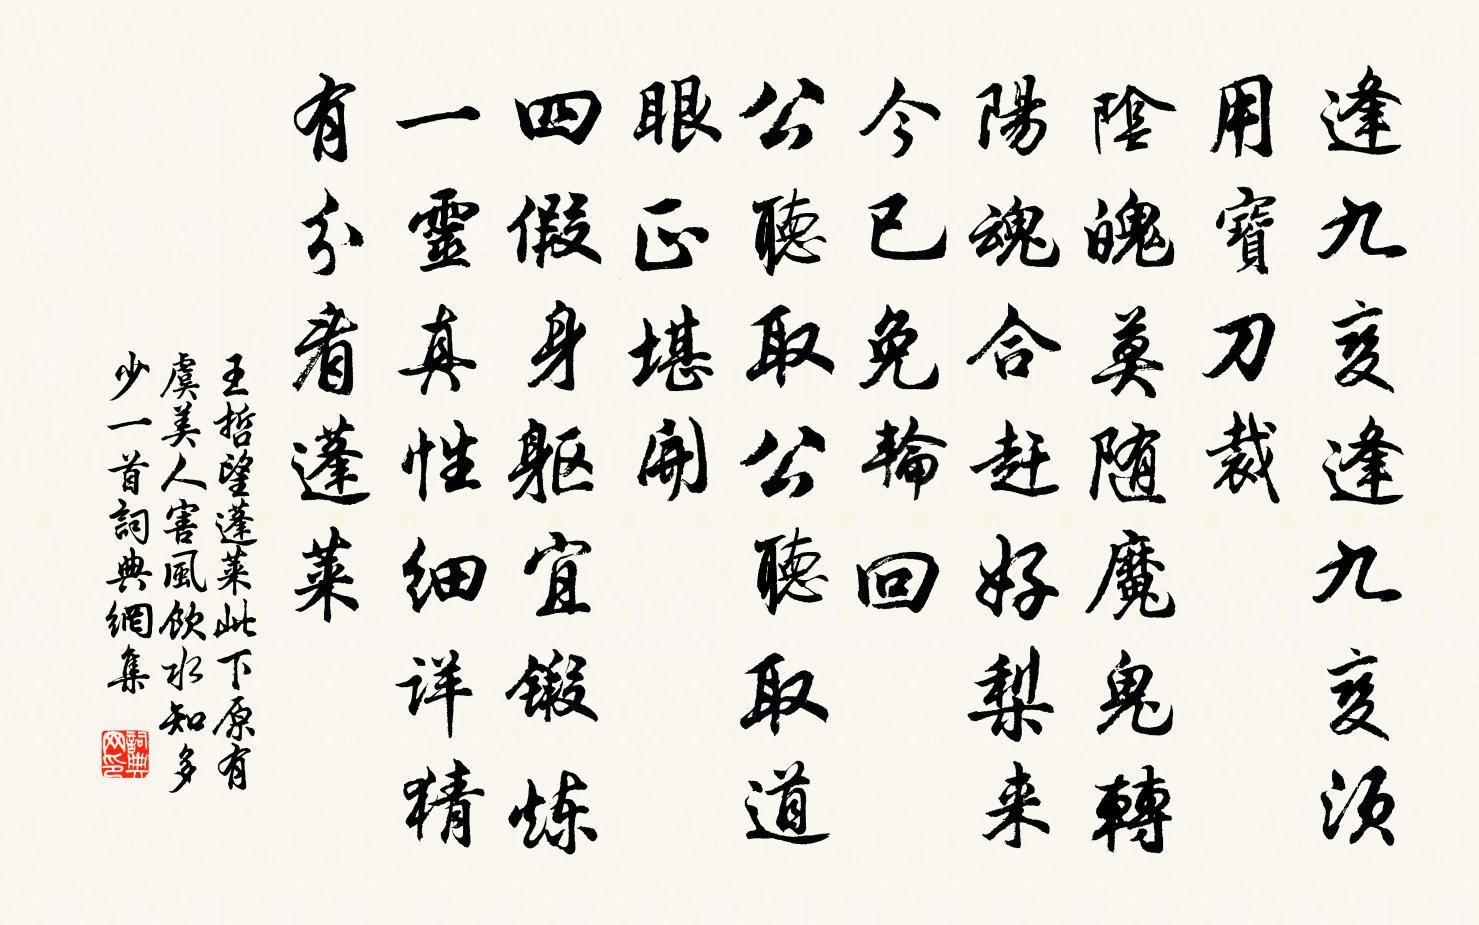 逢九変逢九変須
用寶刀裁
陰魄莫随魔鬼轉
陽魂合赶好梨来
今已免輪回
公聴取公聴取道
眼正堪開
四假身躯宜鍛炼
一靈真性细详猜
有分看蓬莱
王哲望蓬莱此下原有
虞美人害風飲水知多
少一首詞典網集
詞典网印